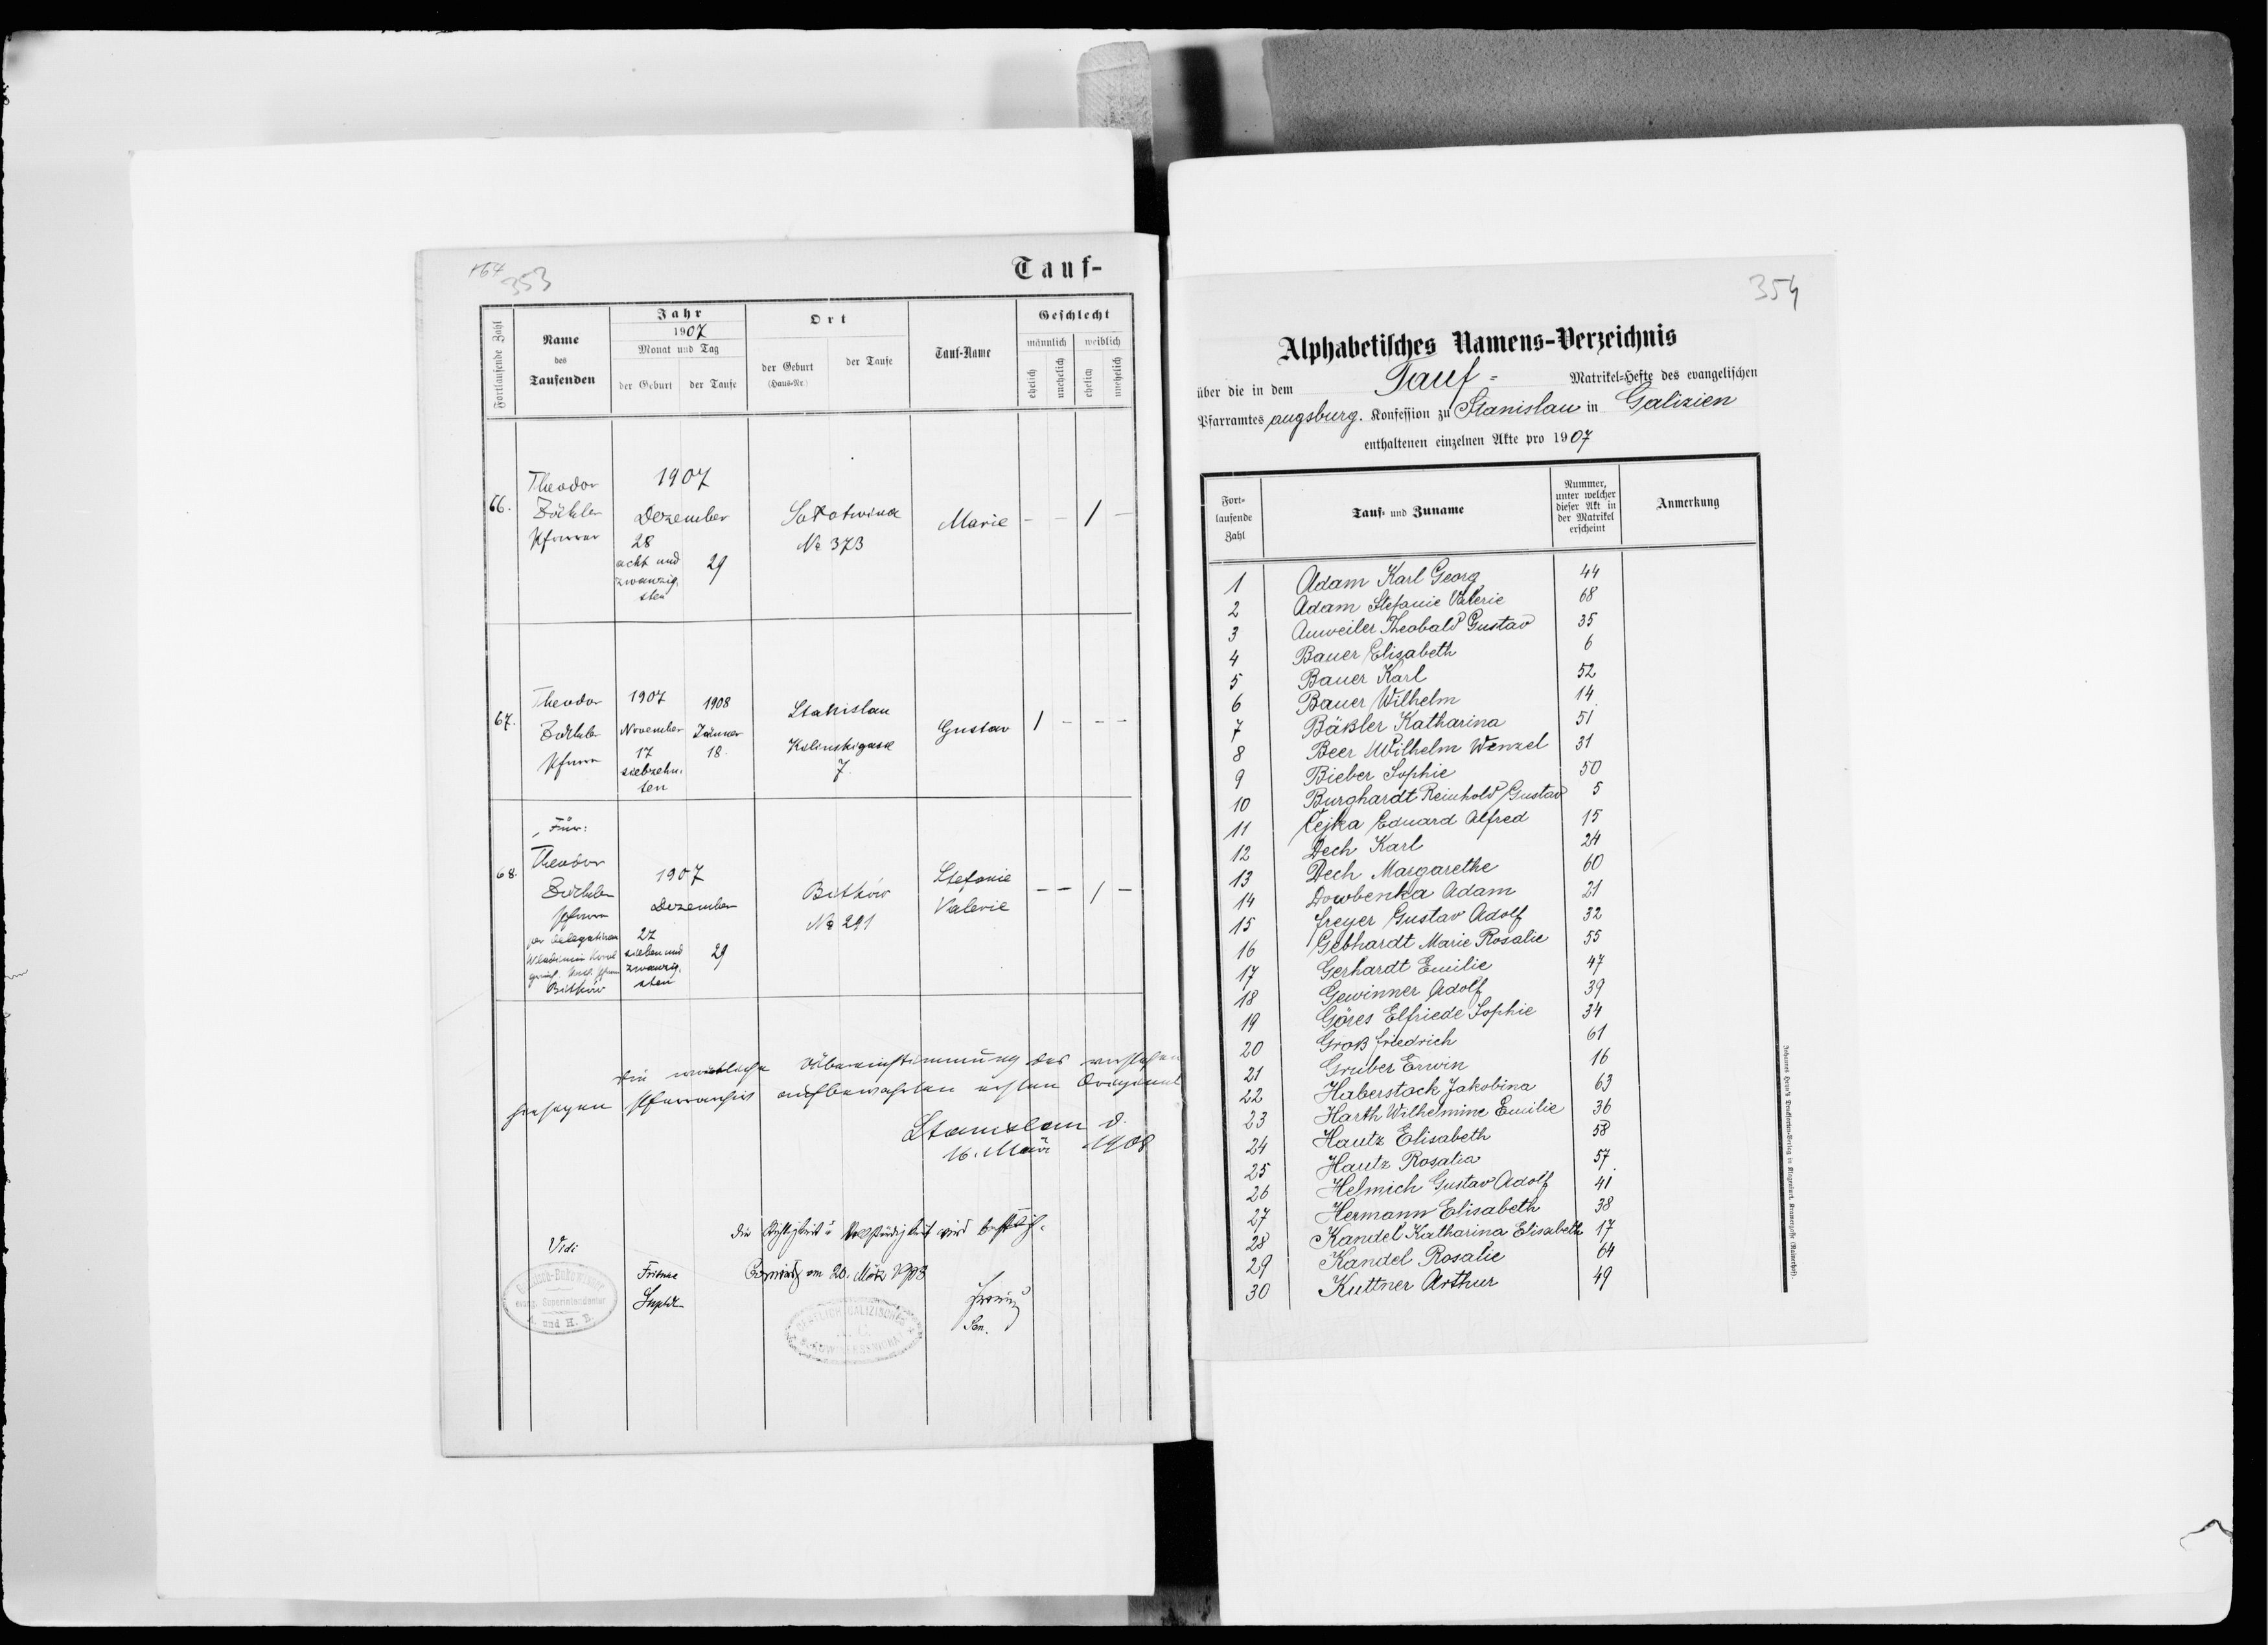 164
353
Tauf-
Fortlaufende Zahl
Name
des
Taufenden
Jahr
1907
Monat und Tag
der Geburt
der Taufe
Ort
der Geburt
(Haus-Nr.)
der Taufe
Tauf-Name
Geschlecht
männlich
weiblich
ehelich
unehelich
ehelich
unehelich
66.
Theodor
Zöckler
Pfarrer
1907
Dezember
28
acht und
zwanzig,
sten
29
Sołotwina
№ 373
Marie
- - 1 -
67.
Theodor
Zöckler
Pfarrer
1907
November
17
siebzehn,
ten
1908
Jänner
18
Stanislau
Kilinskigasse
7.
Gustav
1 - - -
68.
Für:
Theodor
Zöckler
Pfarrer
per delegationem
Bitków
1907
Dezember
27
sieben und
zwanzig,
sten
29
Bitków
№ 291
Stefanie
Valerie
- - 1 -
Die wörtliche Übereinstimmung des
hiesigen Pfarrarchiv aufbewahrten ersten Original
Stanislau d.
16. März 1908
Die Richtigkeit u Vollständigkeit wird bestätigt.
am 20. März 1908
Vidi
evang. Superintendentur
A. und H. B.
Sen.
354
Alphabetisches Namens-Verzeichnis
über die in dem Tauf- Matrikel-Hefte des evangelischen
Pfarramtes augsburg. Konfession zu Stanislau in Galizien
enthaltenen einzelnen Akte pro 1907
Fort-
laufende
Zahl
Tauf- und Zuname
Nummer,
unter welcher
dieser Akt in
der Matrikel
erscheint
Anmerkung
1 Adam Karl Georg 44
2 Adam Stefanie Valerie 68
3 Auweiler Theobald Gustav 35
4 Bauer Elisabeth 6
5 Bauer Karl 52
6 Bauer Wilhelm 14
7 Bäßler Katharina 51
8 Beer Wilhelm Wenzel 31
9 Bieber Sophie 50
10 Burghardt Reinhold Gustav 5
11 Čejka Eduard Alfred 15
12 Dech Karl 24
13 Dech Margarethe 60
14 Dowbenka Adam 21
15 Freyer Gustav Adolf 32
16 Gebhardt Marie Rosalie 55
17 Gerhardt Emilie 47
18 Gewinner Adolf 39
19 Göres Elfriede Sophie 34
20 Groß Friedrich 61
21 Gruber Erwin 16
22 Haberstock Jakobina 63
23 Harth Wilhelmine Emilie 36
24 Hautz Elisabeth 58
25 Hautz Rosalia 57
26 Helmich Gustav Adolf 41
27 Hermann Elisabeth 38
28 Kandel Katharina Elisabeth 17
29 Kandel Rosalie 64
30 Kuttner Arthur 49